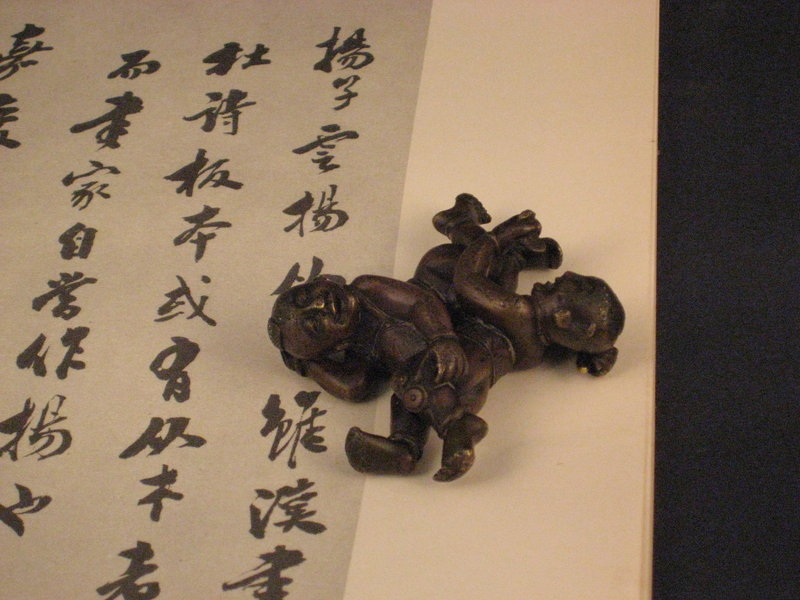 揚子雲揚雖漢書
杜詩板本或有从木者
而書家自當作揚也
嘉